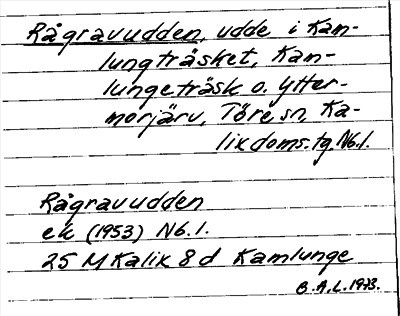 Rågravudden, udde i Kam-
lungträsket, Kam-
lungeträsk o. Ytter-
morjärv, Töre sn, Ka-
lix doms.tg Nb.l.
Rågravudden
ek (1953) Nb.l.
25 M Kalix 8 d Kamlunge
B.A.L. 1973.